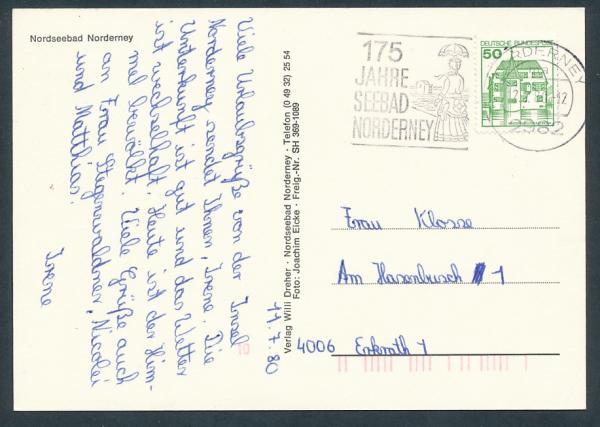 Nordseebad Norderney
Viele Urlaubsgrüße von der Insel
Norderney sendet Ihnen, Irene. Die
Unterkunft ist gut und das Wetter
ist wechselhaft. Heute ist der Him-
mel bewölkt. Viele Grüße auch
an Frau Stegenwalpner, Nicolei
und Matthias.
Irene
11.7.80
Verlag Willi Dreher · Nordseebad Norderney · Telefon (0 49 32) 25 54
Foto: Joachim Eicke · Freig.-Nr. SH 369-1089
175
JAHRE
SEEBAD
NORDERNEY
DEUTSCHE BUNDESPOST
50
NORDERNEY
2982
Frau Klosse
Am Hasenbusch 1
4006 Erkrath 1